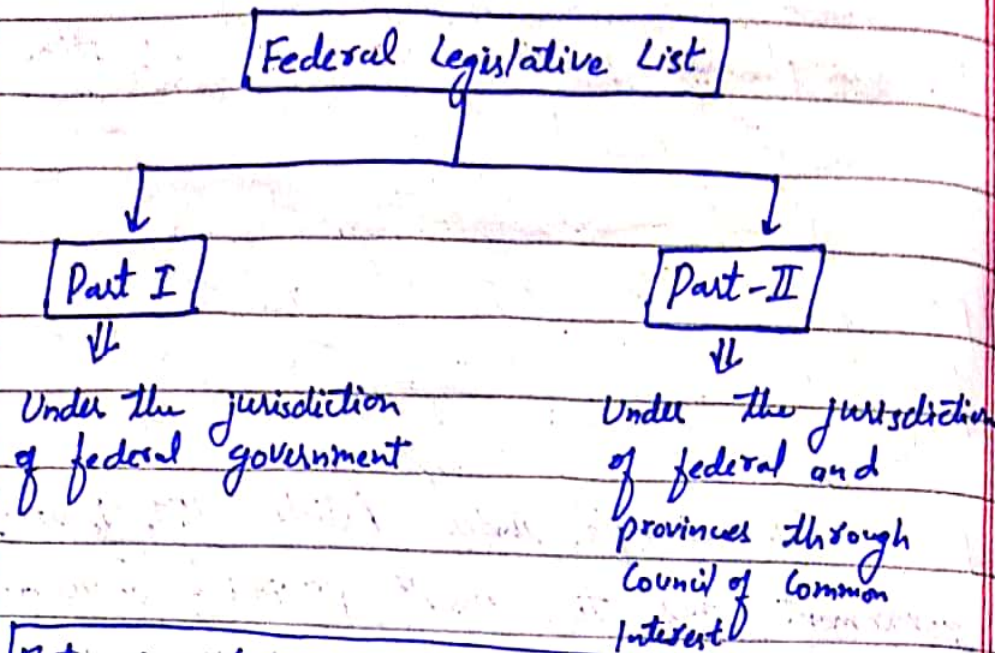 Federal Legislative List
Part I
Part-II
Under the jurisdiction
of federal government
Under the jurisdiction
of federal and
provinces through
Council of Common
Interest